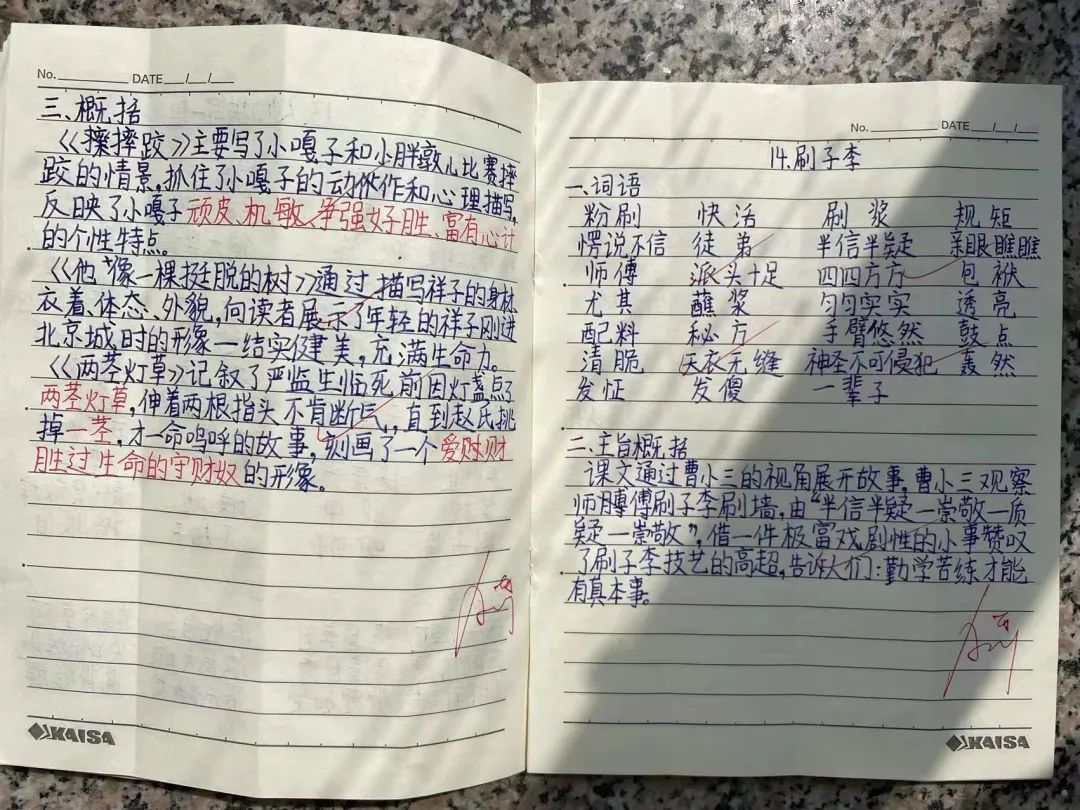 No. DATE / /
三、概括
《摔跤》主要写了小嘎子和小胖墩儿比赛摔
跤的情景,抓住了小嘎子的动作和心理描写,
反映了小嘎子顽皮、机敏、争强好胜、富有心计
的个性特点。
《他像一棵挺脱的树》通过描写祥子的身材、
衣着、体态、外貌,向读者展示了年轻的祥子刚进
北京城时的形像—结实健美,充满生命力。
《两茎灯草》记叙了严监生临死前因灯盏点了
两茎灯草,伸着两根指头不肯断气,直到赵氏挑
掉一茎,才一命呜呼的故事,刻画了一个爱财
胜过生命的守财奴的形象。
KAISA
No. DATE / /
14.刷子李
一、词语
粉刷 快活 刷浆 规矩
愣说不信 徒弟 半信半疑 亲眼瞧瞧
师傅 派头十足 四四方方 包袱
尤其 蘸浆 匀匀实实 透亮
配料 秘方 手臂悠然 鼓点
清脆 天衣无缝 神圣不可侵犯 轰然
发怔 发傻 一辈子
二、主旨概括
课文通过曹小三的视角展开故事。曹小三观察
师傅刷子李刷墙,由“半信半疑—崇敬—质
疑—崇敬”,借一件极富戏剧性的小事赞叹
了刷子李技艺的高超,告诉人们:勤学苦练才能
有真本事。
KAISA